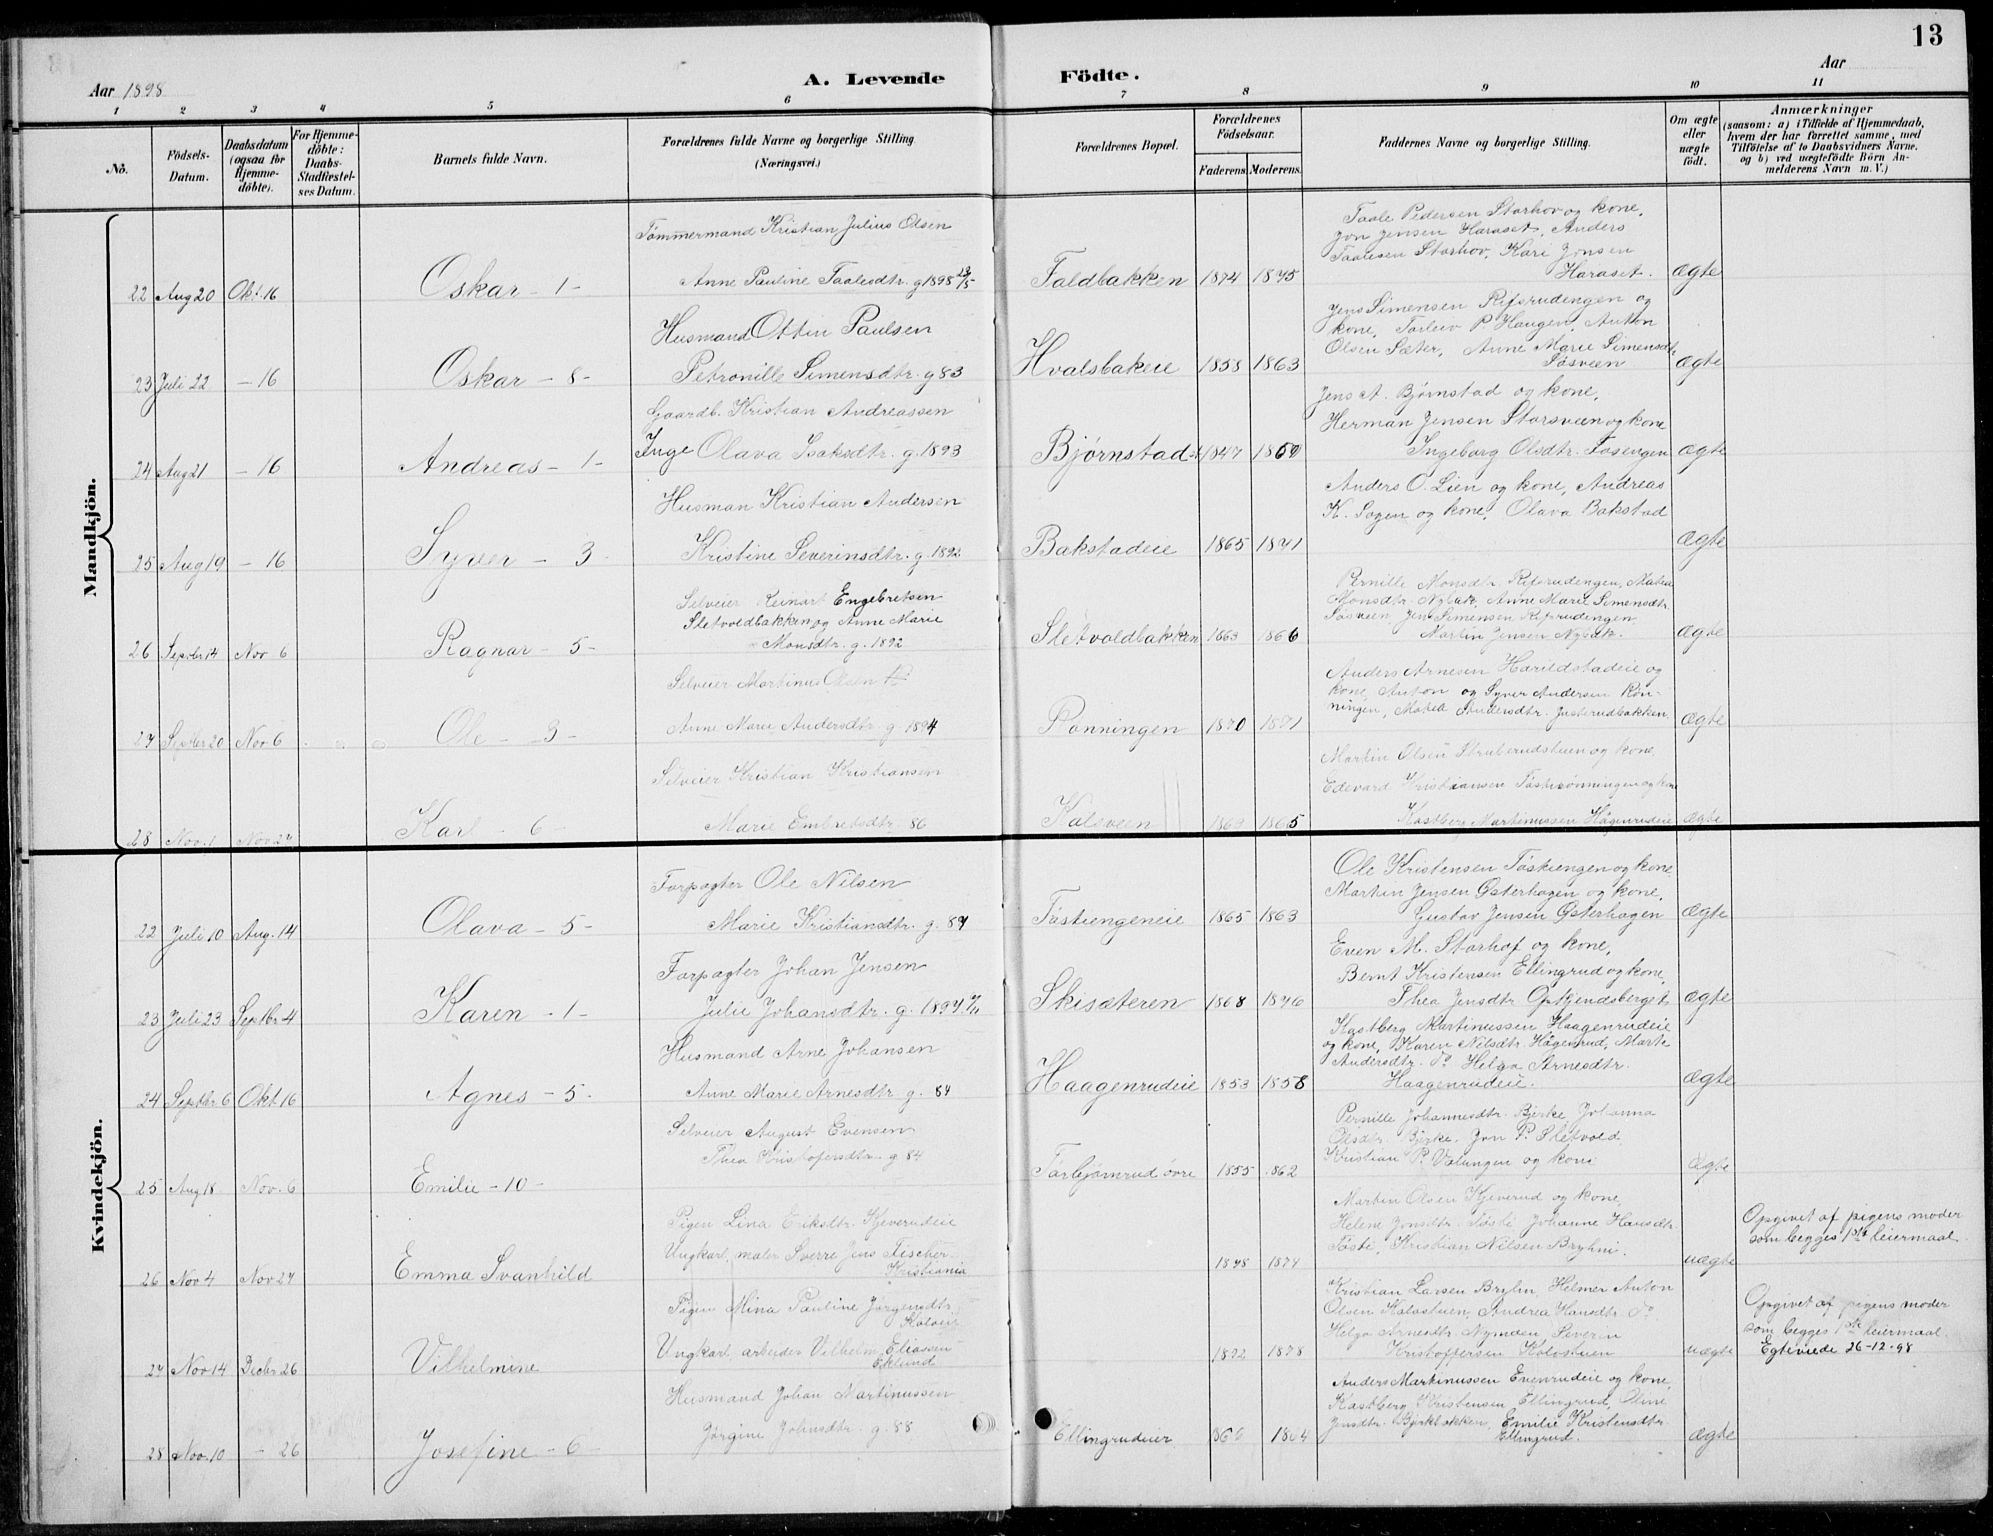 13
Aar 1898
A. Levende Födte.
Aar
1 2 3 4 5 6 7 8 9 10 11
No.
Födsels-Datum.
Daabsdatum (ogsaa for Hjemme-döbte).
For Hjemme-döbte: Daabs-Stadfæstel-ses Datum.
Barnets fulde Navn.
Forældrenes fulde Navne og borgerlige Stilling (Næringsvei.)
Forældrenes Bopæl.
Forældrenes Födselsaar.
Faderens. Moderens.
Faddernes Navne og borgerlige Stilling.
Om ægte eller uægte födt.
Anmærkninger
(saasom: a) i Tilfælde af Hjemmedaab, hvem der har forrettet samme, med Tilföielse af to Daabsvidners Navne. og b) ved uægtefödte Börn An-melderens Navn m. V.)
Mandkjön.
22 Aug 20 Okt. 16 Oskar - 1 -
Tömmermand Kristian Julius Olsen
Anne Pauline Taalesdtr. g 1898 23/5
Faldbakken 1874 1875
Taale Pedersen Storhov og kone,
Jon Jensen Haraset, Anders
Taalesen Storhov, Kari Jonsen
Haraset. Ægte
23 Juli 22 - 16 Oskar - 8 -
Husmand Ottin Paulsen
Petronille Simensdtr. g 83
Hvalsbakeie 1858 1863
Jens Simensen Rifsrudengen og
kone, Torleiv P. Haugen, Anton
Olsen Sæter, Anne Marie Simensdtr.
Søsveen Ægte
24 Aug 21 - 16 Andreas - 1 -
Gaardb. Kristian Andreassen
Inge Olava Isaksdtr. g. 1893
Bjørnstad 1847 1859
Jens A. Bjørnstad og kone,
Herman Jensen Storsveen og kone
Ingeborg Olsdtr. Fosengen Ægte
25 Aug 19 - 16 Syver - 3 -
Husman Kristian Andersen
Kristine Severinsdtr. g. 1892
Bakstadeie 1865 1871
Anders O. Lien og kone, Andreas
K. Sogen og kone, Olava Bakstad
Ægte
26 Septbr 14 Nov 6 Ragnar - 5 -
Selveier Reinart Engebretsen
Sletvoldbakken og Anne Marie
Monsdtr. g. 1892
Sletvoldbakken 1863 1866
Pernille Monsdtr. Rifsrudengen, Matea
Monsdtr. Nybak, Anne Marie Simensdtr.
Søsveen, Jens Simensen Rifsrudengen,
Martin Jensen Nybak. Ægte
27 Septbr 20 Nov 6 Ole - 3 -
Selveier Martinus Olsen
Anne Marie Andersdtr g 1894
Rønningen 1870 1871
Anders Arnesen Harildstadeie og
kone, Anton og Syver Andersen Røn-
ningen, Matea Andersdtr. Justerudbakken Ægte
28 Nov. 1 Nov 27 Karl - 6 -
Selveier Kristian Kristiansen
Marie Embretsdtr. 86
Kalsveen 1865
Martin Olsen Struberudstuen og kone,
Edevard Kristiansen Tøsterønningen og kone
Kastberg Martinussen Hågenrudeie Ægte
Kvindekjön.
22 Juli 10 Aug. 14 Olava - 5 -
Forpagter Ole Nilsen
Marie Kristiansdtr. g. 87
Töstiengeneie 1865 1863
Ole Kristensen Töstiengen og kone
Martin Jensen Østerhagen og kone,
Gustav Jensen Østerhagen Ægte
23 Juli 23 Septbr 4 Karen - 1 -
Forpagter Johan Jensen
Julie Johansdtr. g. 1897
Skisæteren 1868 1876
Even M. Storhof og kone,
Bernt Kristensen Ellingrud og kone,
Thea Jensdtr Gykjendsberget Ægte
24 Septbr 6 Okt 16 Agnes - 5 -
Husmand Arne Johansen
Anne Marie Arnesdtr g. 84
Haagenrudeie 1853 1858
Kastberg Martinussen Haagenrudeie
og kone, Karen Nilsdtr. Hågenrud, Marte
Andersdtr. do Helga Arnesdtr.
Haagenrudeie. Ægte
25 Aug 18 Nov. 6 Emilie - 10 -
Selveier August Evensen
Thea Kristofersdtr. g 84
Torbjørnrud övre 1855 862
Pernille Johannesdtr. Bjerke, Johanna
Olsdtr. Bjerke, Jon P. Sletvold
Kristian P. Volungen og kone Ægte
26 Nov 4 Nov 27 Emma Svanhild
Pigen Lina Eriksdtr. Kjeverudeie
Ungkarl, maler Sverre Jens Fischer
Kristiania
1878 1874
Martin Olsen Kjeverud og kone
Helene Jonsdtr. Tøsti, Johanne Hansdtr.
Tøsti, Kristian Nilsen Bryhni. uægte
Opgivet af pigens moder
som begges 1ste leiermaal.
27 Nov 14 Decbr 26 Vilhelmine
Pigen Mina Pauline Jørgensdtr.
Ungkarl arbeider Vilhelm Eliassen
Eklund
1872 1878
Kristian Larsen Bryhn, Helmer Anton
Olsen Kolostuen, Andrea Hansdtr. do
Helga Arnesdtr. Nymoen, Severin
Kristoffersen Kolostuen uægte
Opgivet af pigens moder
som begges 1ste leiermaal.
Egteviede 26-12-98
28 Nov. 10 - 26 Josefine - 6 -
Husmand Johan Martinussen
Jørgine Johnsdtr. g. 88
Ellingrudeier 866 1864
Anders Martinussen Evenrudeie og kone,
Kastberg Kristensen Ellingrud, Oline
Jensdtr. Bjerkbakken, Emilie Kristensdtr.
Ellingrud. Ægte